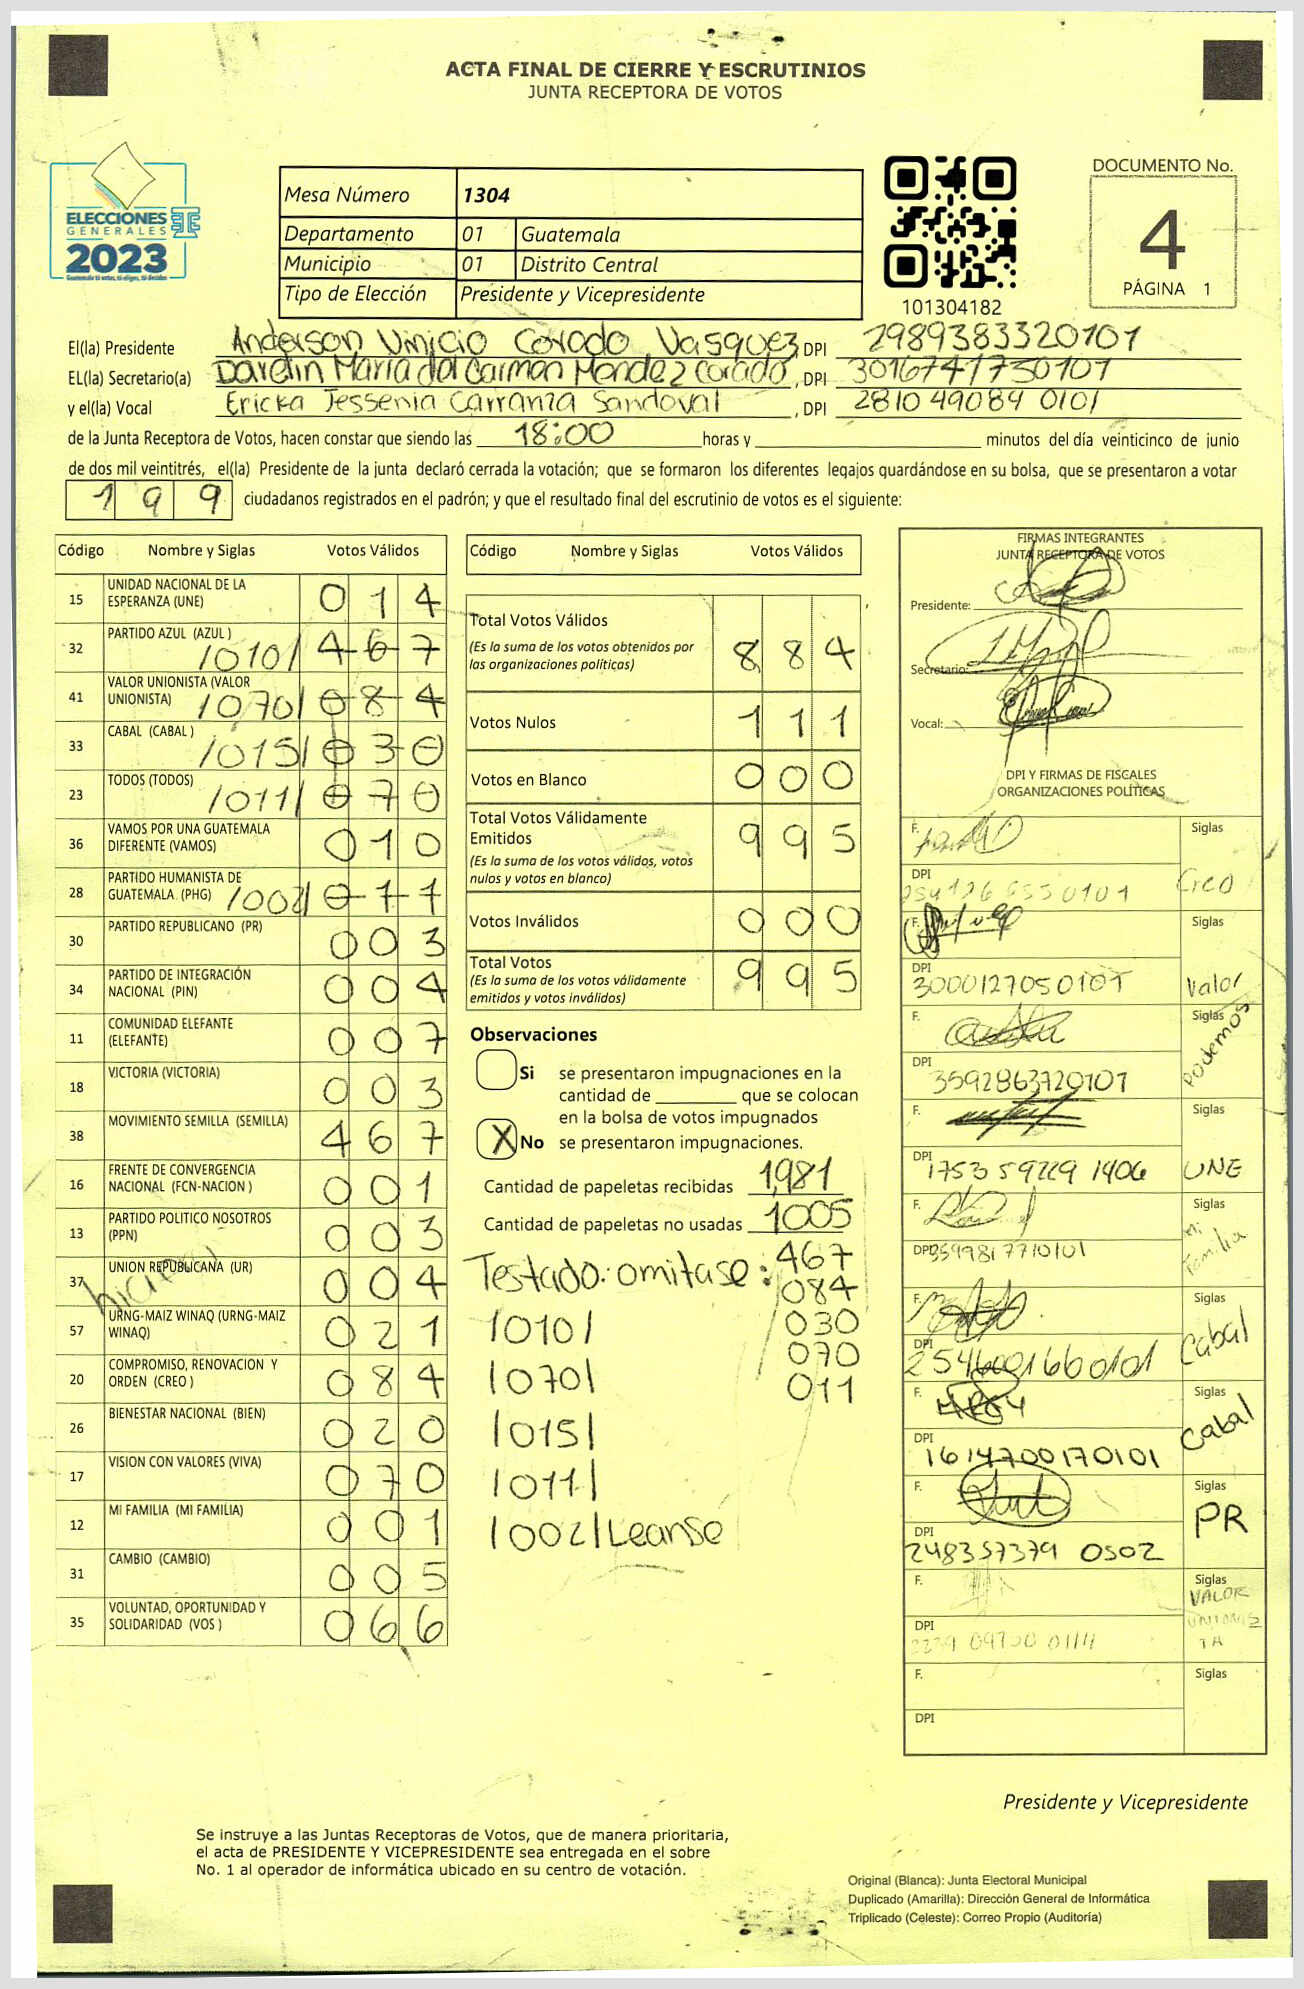 ACTA FINAL DE CIERRE Y ESCRUTINIOS
JUNTA RECEPTORA DE VOTOS
ELECCIONES
GENERALES
2023
Mesa Número 1304
Departamento 01 Guatemala
Municipio 01 Distrito Central
Tipo de Elección Presidente y Vicepresidente
101304182
DOCUMENTO No.
4
PÁGINA 1
El(la) Presidente Anderson Vinicio Corado Vasquez, DPI 2989383320101
EL(la) Secretario(a) Darelin María del Carmen Mendez Corado, DPI 3016741750101
y el(la) Vocal Ericka Jessenia Carranza Sandoval, DPI 2810 49084 0101
de la Junta Receptora de Votos, hacen constar que siendo las 18:00 horas y minutos del día veinticinco de junio
de dos mil veintitrés, el(la) Presidente de la junta declaró cerrada la votación; que se formaron los diferentes legajos guardándose en su bolsa, que se presentaron a votar
199 ciudadanos registrados en el padrón; y que el resultado final del escrutinio de votos es el siguiente:
Código Nombre y Siglas Votos Válidos
15 UNIDAD NACIONAL DE LA ESPERANZA (UNE) 014
32 PARTIDO AZUL (AZUL ) /010/ 467
41 VALOR UNIONISTA (VALOR UNIONISTA) /070/ 084
33 CABAL (CABAL ) /015/ 030
23 TODOS (TODOS) /011/ 070
36 VAMOS POR UNA GUATEMALA DIFERENTE (VAMOS) 010
28 PARTIDO HUMANISTA DE GUATEMALA (PHG) /002/ 011
30 PARTIDO REPUBLICANO (PR) 003
34 PARTIDO DE INTEGRACIÓN NACIONAL (PIN) 004
11 COMUNIDAD ELEFANTE (ELEFANTE) 007
18 VICTORIA (VICTORIA) 003
38 MOVIMIENTO SEMILLA (SEMILLA) 467
16 FRENTE DE CONVERGENCIA NACIONAL (FCN-NACION ) 001
13 PARTIDO POLITICO NOSOTROS (PPN) 003
37 UNION REPUBLICANA (UR) 004
57 URNG-MAIZ WINAQ (URNG-MAIZ WINAQ) 021
20 COMPROMISO, RENOVACION Y ORDEN (CREO ) 084
26 BIENESTAR NACIONAL (BIEN) 020
17 VISION CON VALORES (VIVA) 070
12 MI FAMILIA (MI FAMILIA) 001
31 CAMBIO (CAMBIO) 005
35 VOLUNTAD, OPORTUNIDAD Y SOLIDARIDAD (VOS ) 066
Código Nombre y Siglas Votos Válidos
Total Votos Válidos 884
(Es la suma de los votos obtenidos por
las organizaciones políticas)
Votos Nulos 111
Votos en Blanco 000
Total Votos Válidamente
Emitidos 995
(Es la suma de los votos válidos, votos
nulos y votos en blanco)
Votos Inválidos 000
Total Votos 995
(Es la suma de los votos válidamente
emitidos y votos inválidos)
Observaciones
Si se presentaron impugnaciones en la
cantidad de que se colocan
en la bolsa de votos impugnados
X No se presentaron impugnaciones.
Cantidad de papeletas recibidas 1,981
Cantidad de papeletas no usadas 1005
Testado: omitase: 467
084
/010/ 030
070
/070/ 011
/015/
/011/
/002/ Leanse
FIRMAS INTEGRANTES
JUNTA RECEPTORA DE VOTOS
Presidente:
Secretario:
Vocal:
DPI Y FIRMAS DE FISCALES
ORGANIZACIONES POLÍTICAS
F. Siglas
DPI Creo
F. Siglas
DPI 3000127050101 Valor
F. Siglas
DPI 3592863720101 Podemos
F. Siglas
DPI 1753 59229 1406 UNE
F. Siglas
DPI 3599817710101 Mi Familia
F. Siglas
DPI 2546001660101 Cabal
F. Siglas
DPI 1614700170101 Cabal
F. Siglas
DPI 248357379 0502 PR
F. Siglas
DPI VALOR UNIONISTA
F. Siglas
DPI
Presidente y Vicepresidente
Se instruye a las Juntas Receptoras de Votos, que de manera prioritaria,
el acta de PRESIDENTE Y VICEPRESIDENTE sea entregada en el sobre
No. 1 al operador de informática ubicado en su centro de votación.
Original (Blanca): Junta Electoral Municipal
Duplicado (Amarilla): Dirección General de Informática
Triplicado (Celeste): Correo Propio (Auditoría)